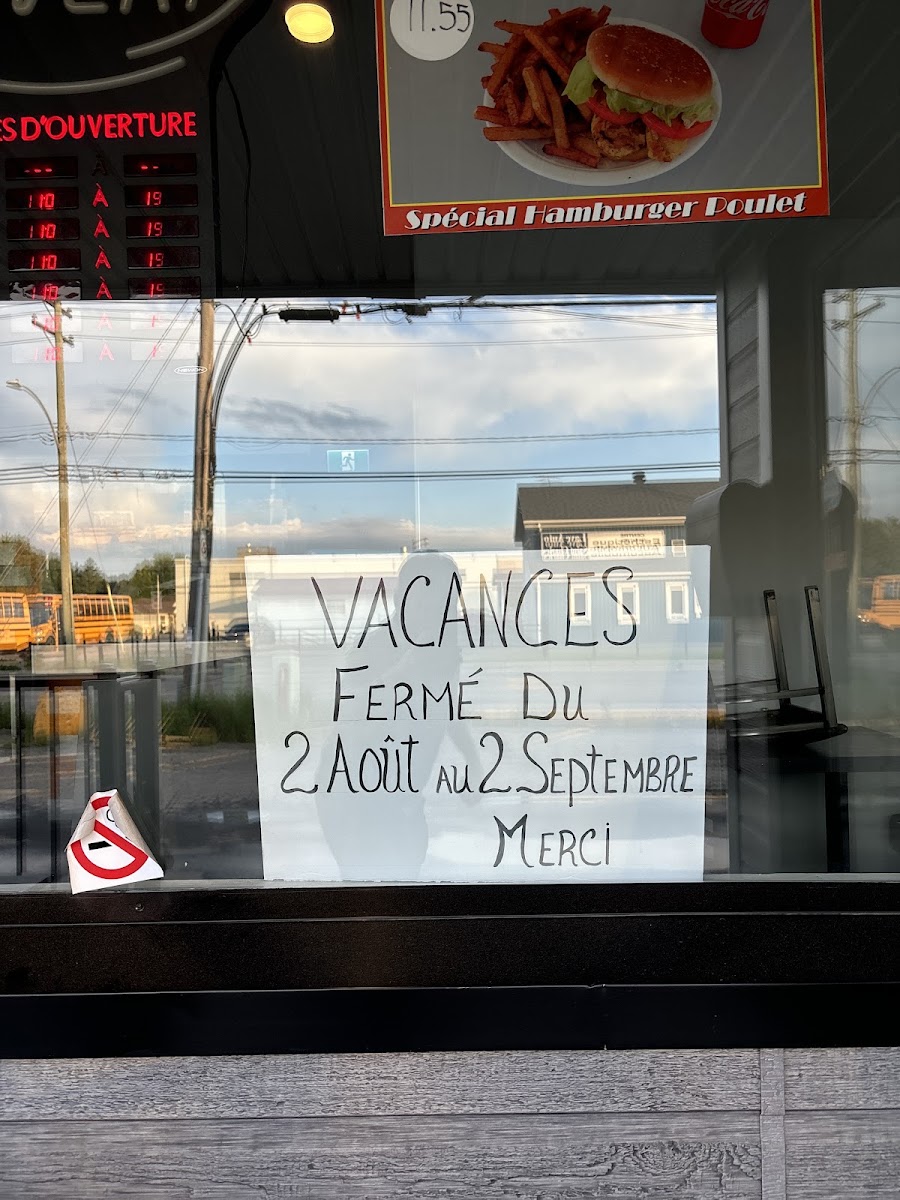 11.55
ES D'OUVERTURE
-- À --
11:0 À 19
11:0 À 19
11:0 À 19
11:0 À 19
Spécial Hamburger Poulet
VACANCES
FERMÉ DU
2 AOÛT AU 2 SEPTEMBRE
MERCI